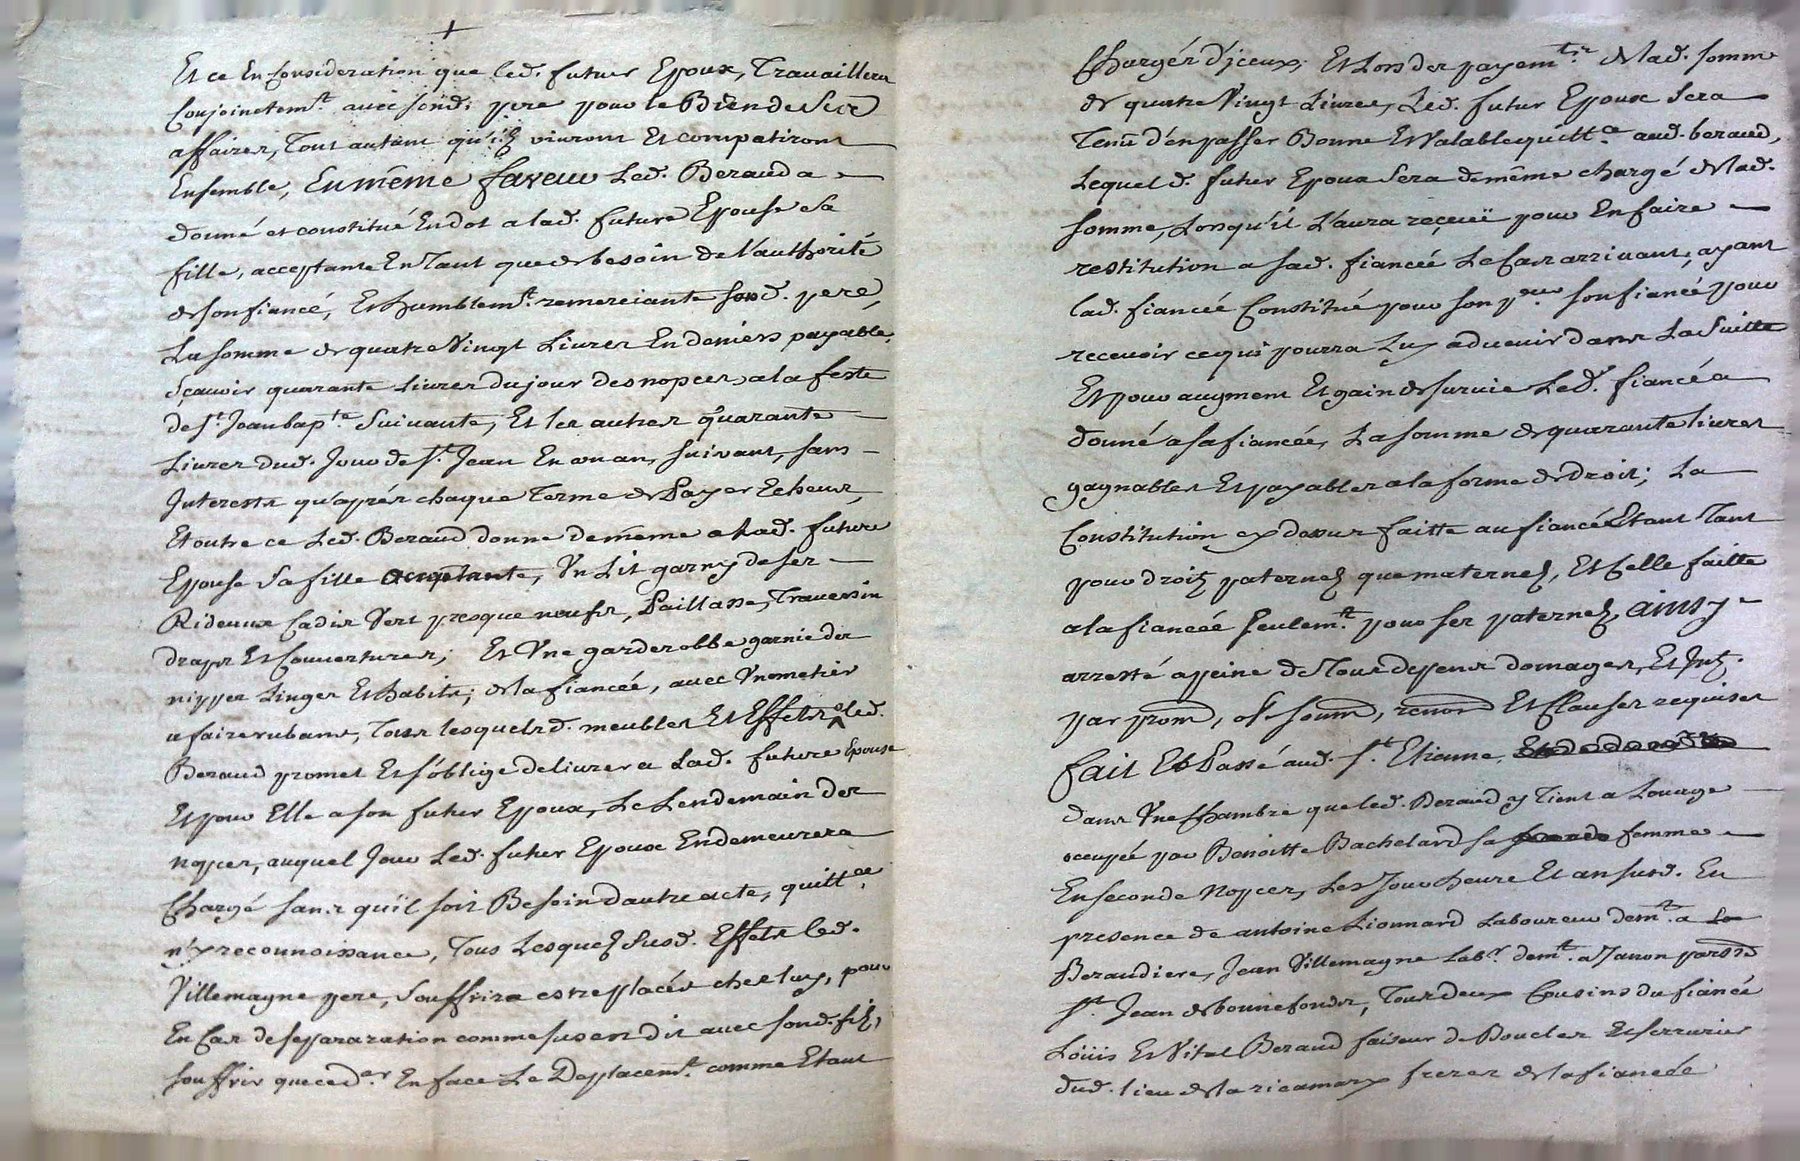 +
Et ce En Consideration que led. futur Epoux, Travaillera
Conjoinctemt. avec sond. pere pour le Bien de Leurs
affaires, Tout autant qu'ilz vivront Et compatiront
Ensemble, En même faveur Led. Beraud a
donné et constitué En dot a lad. future Epouse sa
fille, acceptante En Tant que de besoin de l'authorité
de son fiancé, Et humblemt. remerciante sond. pere,
La somme de quatre Vingt Livres En deniers payable,
Sçavoir quarante Livres du jour des nopces a la feste
de St. Jean bapte. Suivante, Et les autres quarante
Livres dud. Jour de St. Jean En un an, suivant, sans
Interests qu'aprés chaque Terme de Payer Echeus,
Et outre ce Led. Beraud donne de même a Lad. future
Epouse Sa fille acceptante, Un Lit garny de ser
Rideaux Cadis Vert presque neufs, Paillasse, Traversin
draps Et Couvertures; Et Une garderobbe garnie des
nippes Linges Et habits; de la fiancée, avec Un metier
a faire rubans, Tous lesquels d. meubles Et Effets led.
Beraud promet Et s'oblige delivrer a Lad. future Epouse
Et pour Elle a son futur Epoux, Le Lendemain des
nopces, auquel Jour Led. futur Epoux En demeurera
Chargé sans qu'il soit Besoin d'autre acte, quittce.
ny reconnoissance, Tous Lesquelz susd. Effets led.
Villemagne pere, Souffrira estre placés chez luy, pour
En Cas de separaration comme sus en dit avec sond. filz,
souffrir que ced. er En face Le Deplacemt. comme Etant
Chargér d'iceux; Et Lors des payemts. de Lad. somme
de quatre Vingt Livres, Led. futur Epoux Sera
Tenu d'en passer Bonne Et Valable quittce. aud. beraud,
Lequel d. futur Epoux Sera de même chargé de Lad.
somme, Lorsqu'il L'aura reçeüe pour En faire
restitution a sad. fiancée Le Cas arrivant, ayant
lad. fiancée Constitué pour son preur son fiancé pour
recevoir ce qui pourra Luy advenir dans La Suitte
Et pour augment Et gain de survie Led. fiancé a
donné a sa fiancée, La somme de quarante livres
gagnables Et payables a la forme de droit; La
Constitution cy dessus faitte au fiancé Etant Tant
pour droitz paternelz que maternelz, Et Celle faitte
a la fiancée seulemt. pour ses paternelz, ainsy
arresté a peine de Tous depens domages, Et Intz.
par prom, ob. soum, renon Et Clauses requises
fait Et Passé aud. St. Etienne,
dans Une Chambre que led. Beraud y Tient a Louage
occupée par Benoitte Bachelard sa femme
En seconde Nopces, Les Jour heure Et an susd. En
presence de antoine Lionnard Laboureur demt. a La
Beraudiere, Jean Villemagne Labr. demt. a Janon parse
St. Jean de bonnefonds, Tous deux Cousins du fiancé
Loüis Et Vital Beraud faiseur de Boucles Et serrurier
dud. lieu de la ricamary freres de la fiancée